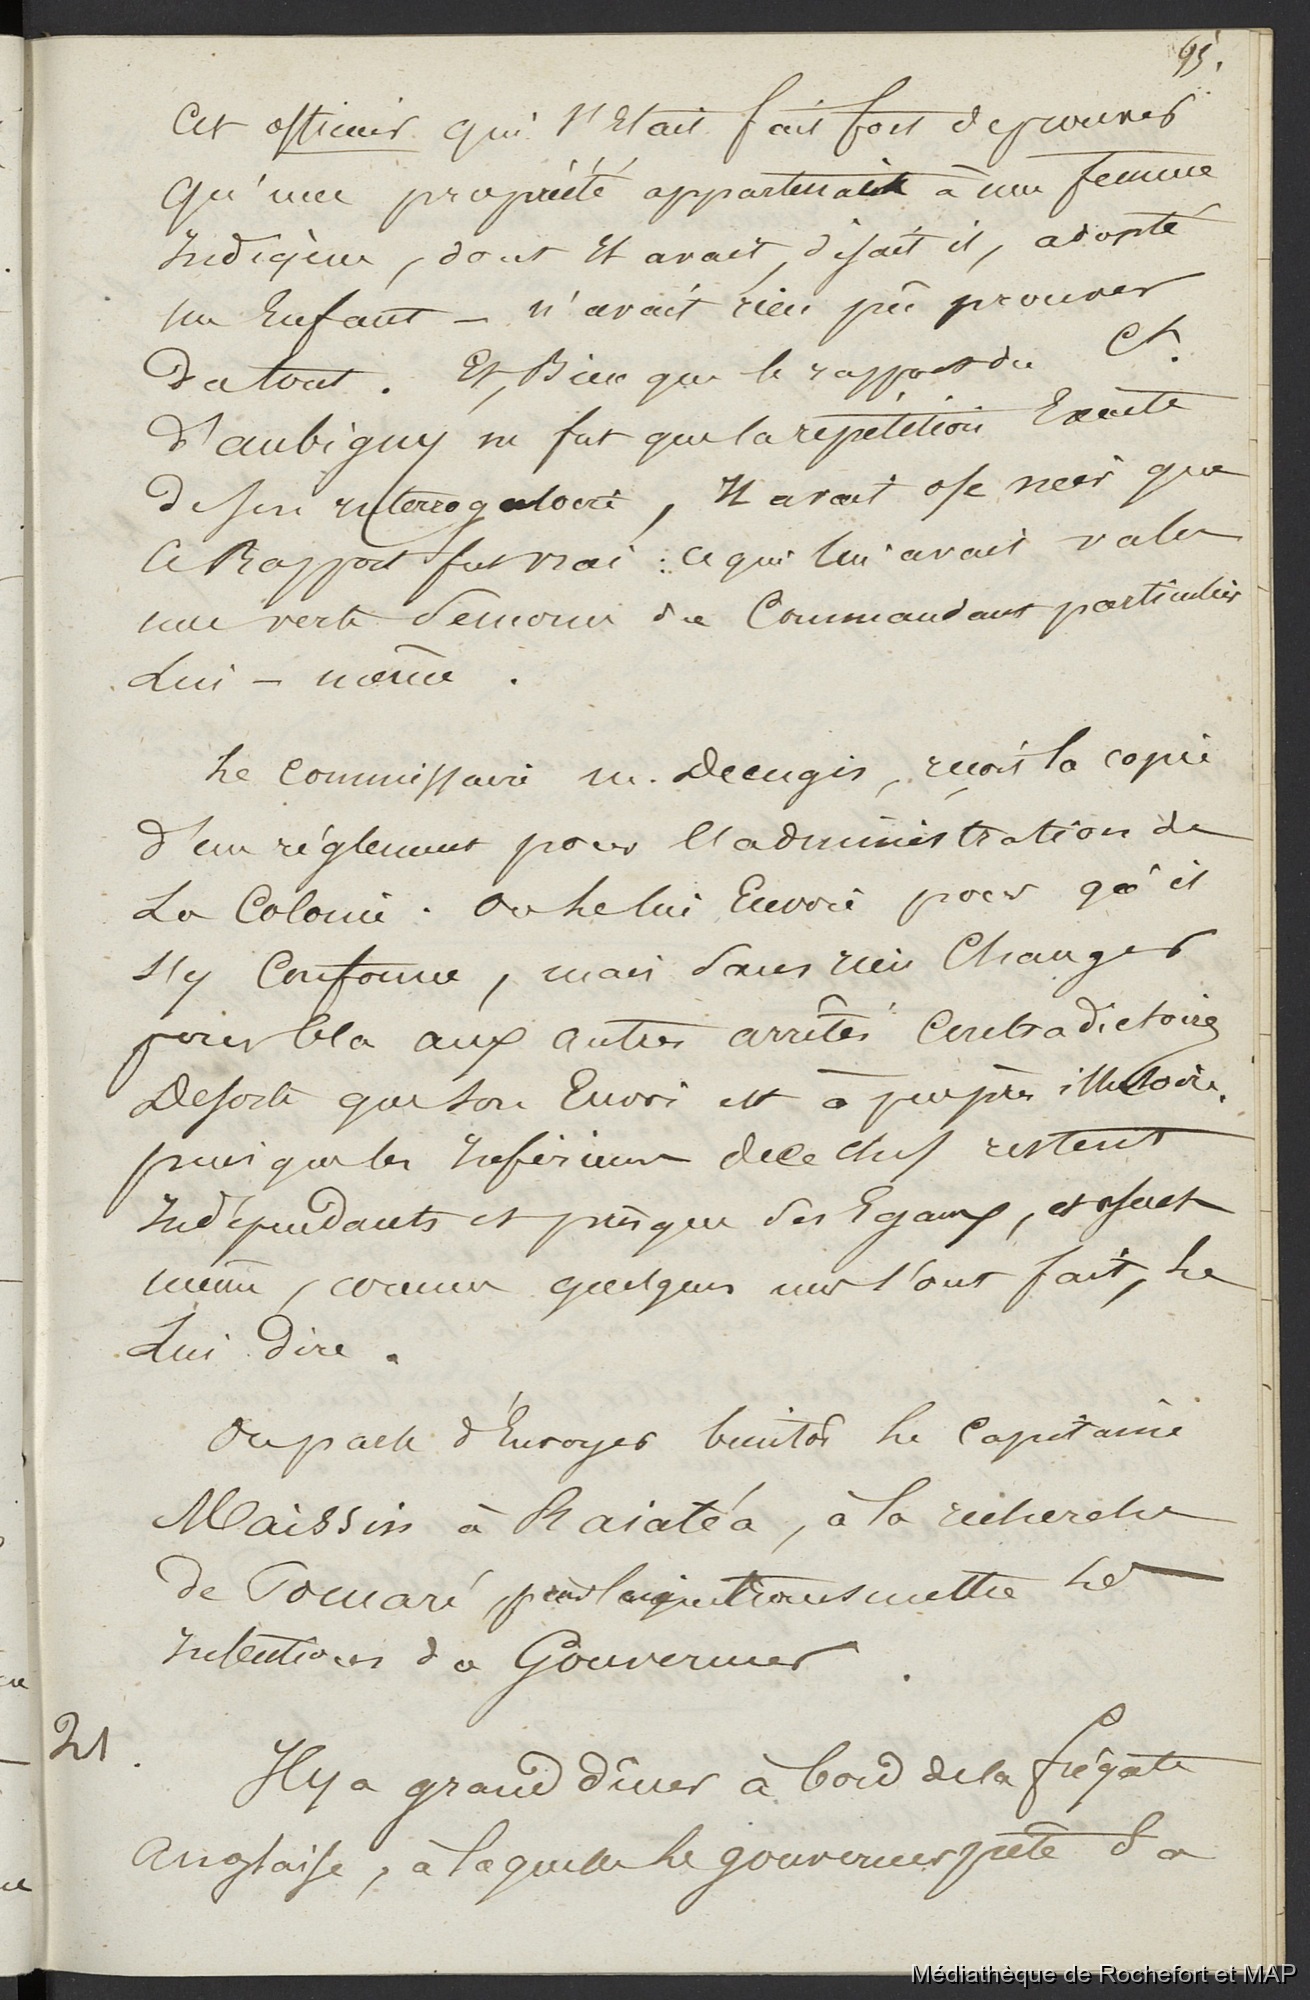 95.
Cet officier qui s'Etait fait fort de prouver
qu'une propriété appartenait à une femme
Indigène, dont Il avait, disait il, adopté
un Enfant — n'avait rien pû prouver
du tout. Et, Bien que le rapport du Ct.
d'aubigny ne fut que la répétition Exacte
de son interrogatoire, Il avait osé nier que
ce Rapport fut vrai : ce qui lui avait valu
une verte semonce du Commandant particulier
Lui - même.
Le commissaire M. Decugis, reçoit la copie
d'un réglement pour l'administration de
La Colonie. On le lui Envoie pour qu'il
s'y Conforme, mais sans rien Changer
pour cela aux autres arrêtés Contradictoires
De sorte que son Envoi est à peu près illusoire,
puisque les Inférieurs de ce chef restent
Indépendants et presque ses Egaux, et osent
même, comme quelques uns l'ont fait, le
Lui dire.
On parle d'Envoyer bientôt le Capitaine
Maissin à Raiatéa, à la recherche
de Pomaré, pour transmettre les
Intentions du Gouverneur.
21. Il y a grand dîner à bord de la frégate
Anglaise, à laquelle le gouverneur prête sa
Médiathèque de Rochefort et MAP